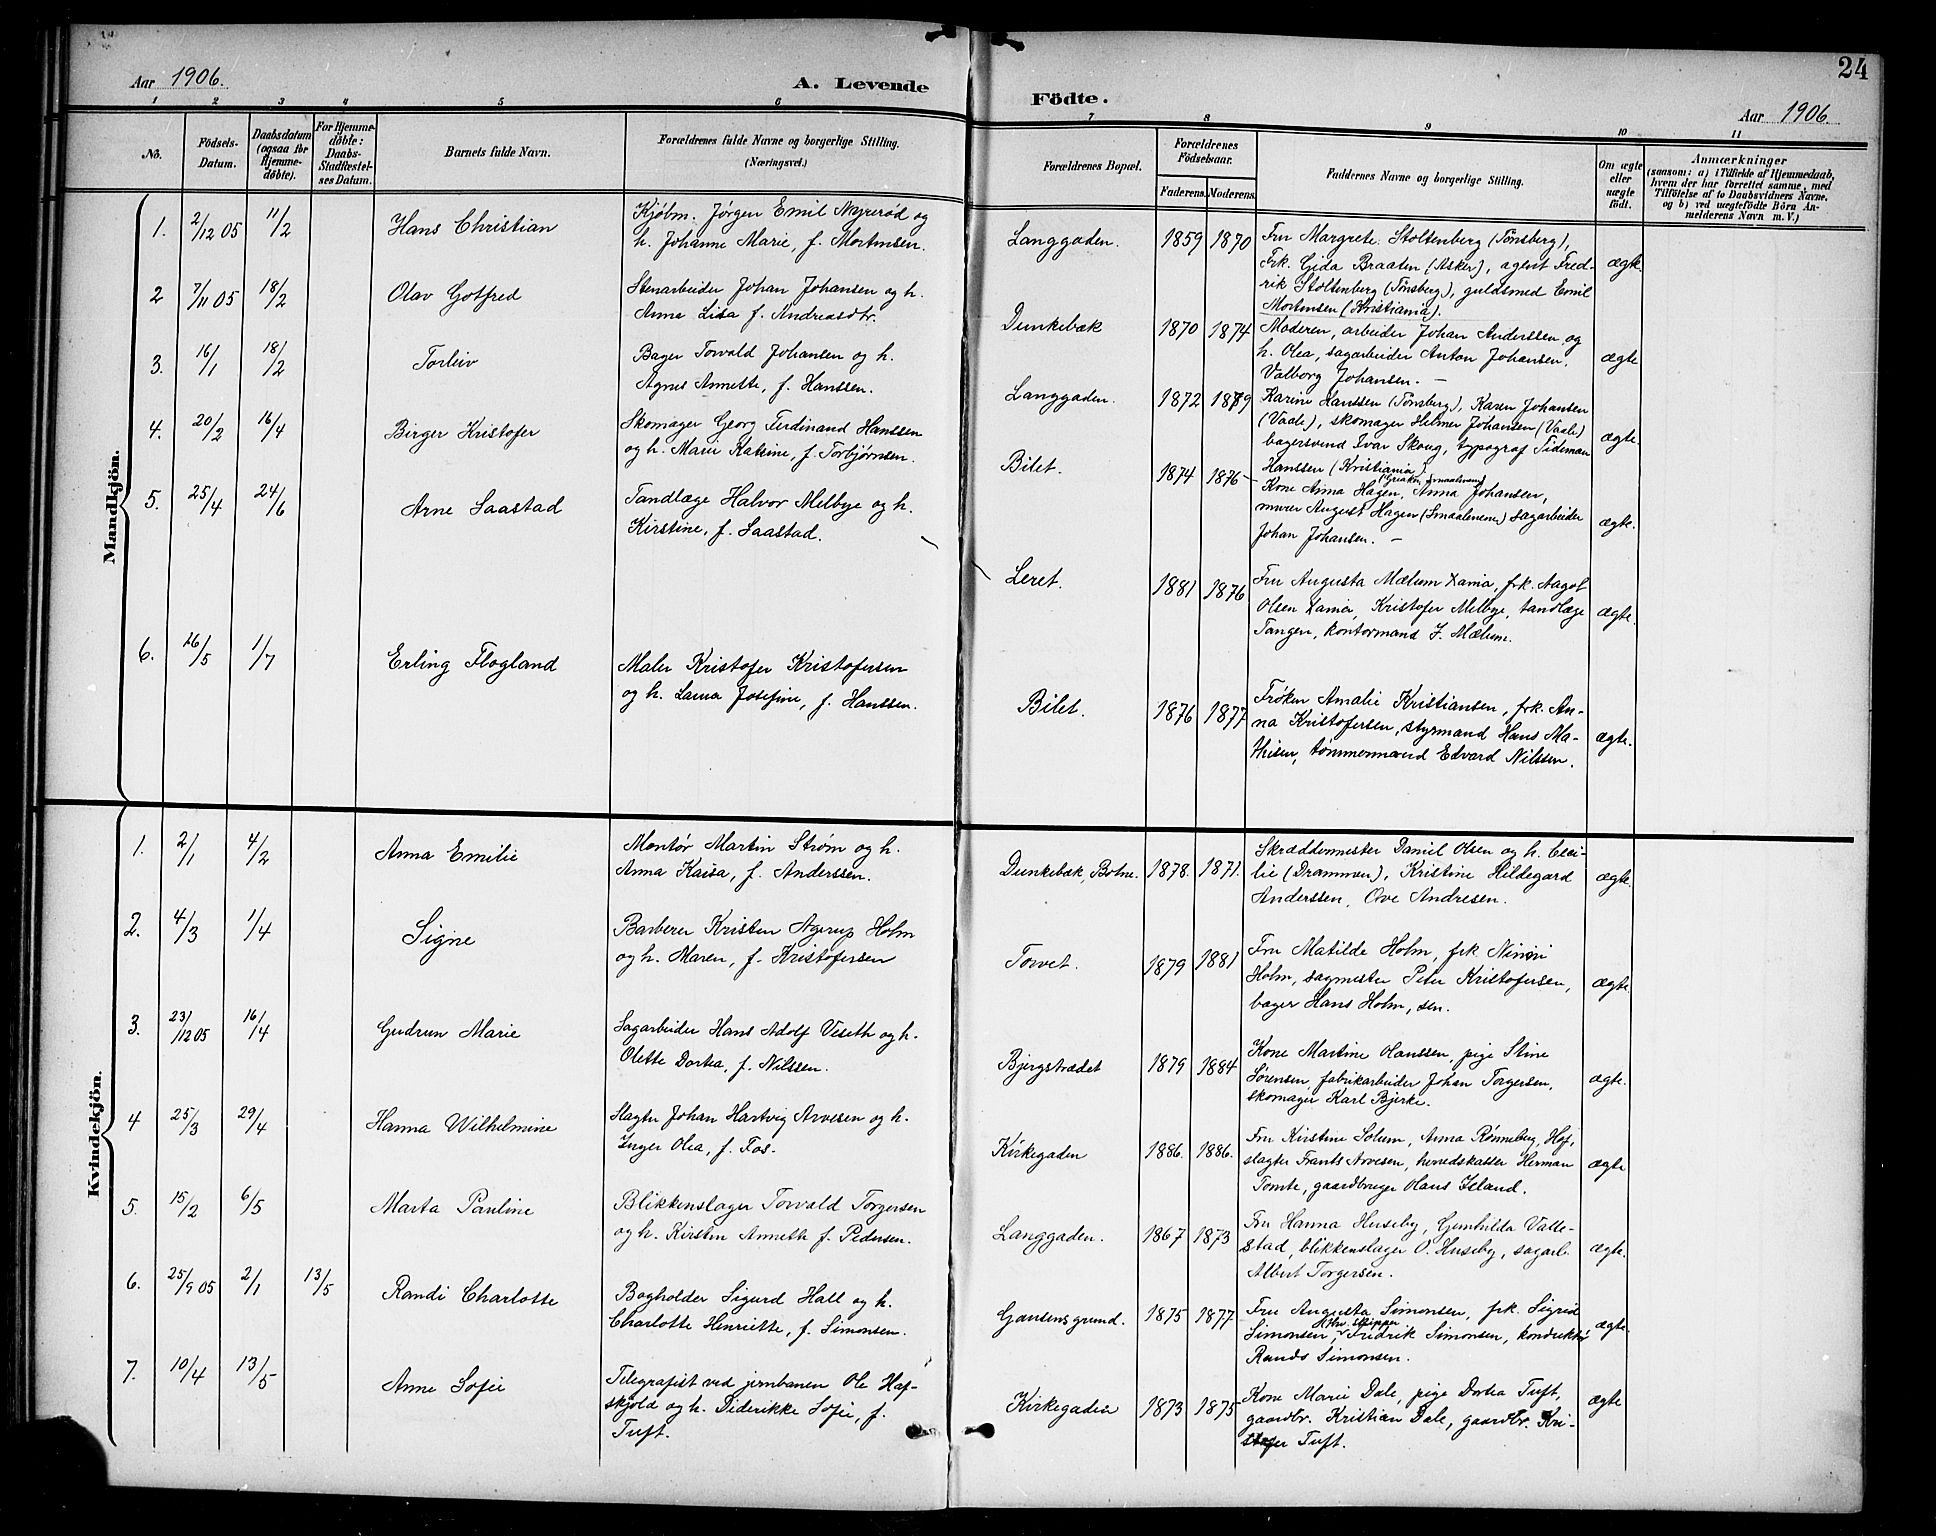 24
Aar 1906. A. Levende
Födte. Aar 1906.
1 2 3 4 5 6
7 8 9 10 11
No.
Födsels-
Datum.
Daabsdatum
(ogsaa for
Hjemme-
døbte).
For Hjemme-
døbte:
Daabs-
Stadfæstel-
ses Datum.
Barnets fulde Navn.
Forældrenes fulde Navne og borgerlige Stilling.
(Næringsvei.)
Forældrenes Bopæl.
Forældrenes
Födselsaar.
Faderens. Moderens.
Faddernes Navne og borgerlige Stilling.
Om ægte
eller
uægte
født.
Anmærkninger
(saasom: a) i Tilfælde af Hjemmedaab,
hvem der har forrettet samme, med
Tilföielse af to Daabsvidners Navne.
og b) ved uægtefödte Börn An-
melderens Navn m. V.)
Mandkjön.
1. 2/12 05 11/2 Hans Christian
Kjøbm. Jørgen Emil Nyrerød og
h. Johanne Marie, f. Mortensen.
Langgaden. 1859 1870
Fru Margrete Stoltenberg (Tønsberg),
Frk. Gida Braaten (Asker), agent Fred-
rik Stoltenberg (Tønsberg), guldsmed Emil
Mortensen (Kristiania).
ægte
2 7/11 05 18/2 Olav Gotfred
Stenarbeider Johan Johansen og h.
Anna Lisa f. Andreasdtr.
Dunkebæk 1870 1874
Moderen, arbeider Johan Anderssen og
h. Olea, sagarbeider Anton Johansen,
Valborg Johansen. –
ægte
3. 16/1 18/2 Torleiv
Bager Torvald Johansen og h.
Agnes Annette, f. Hanssen.
Langgaden. 1872 1879
Karine Hanssen (Tønsberg), Karen Johansen
(Vaale), skomager Helmer Johansen (Vaale)
bagersvend Ivar Skoug, typograf Tideman
Hanssen (Kristiania).
ægte.
4. 20/2 16/4 Birger Kristofer
Skomager Georg Ferdinand Hanssen
og h. Marie Katrine, f. Torbjørnsen.
Bilet. 1874 1876
Kone Anna Hagen, Anna Johansen,
murer August Hagen (Smaalenene) sagarbeider
Johan Johansen. –
ægte.
5. 25/4 24/6 Arne Saastad
Tandlæge Halvor Melbye og h.
Kirstine, f. Saastad.
Leret. 1881 1876
Fru Augusta Mælum Xania, frk. Aagot
Olsen Xania, Kristofer Melbye, tandlæge
Tangen, kontormand J. Mælum.
ægte.
6. 26/5 1/7 Erling Flogland
Maler Kristofer Kristofersen
og h. Laura Josefine, f. Hanssen.
Bilet. 1876 1877
Frøken Amalie Kristiansen, frk. An-
na Kristofersen, styrmand Hans Ma-
thisen, tømmermand Edvard Nilssen.
ægte.
Kvindekjön.
1. 2/1 4/2 Anna Emilie
Montør Martin Strøm og h.
Anna Kaisa, f. Anderssen.
Dunkebæk, Botne. 1878. 1871.
Skræddermester Daniel Olsen og h. Ceci-
lie (Drammen), Kristine Hildegard
Anderssen, Ove Andresen.
ægte.
2. 4/3 1/4 Signe
Barberer Kristen Agerup Holm
og h. Maren, f. Kristofersen
Torvet. 1879 1881
Fru Matilde Holm, frk Ninni
Holm, sagmester Peter Kristofersen,
bager Hans Holm, sen.
ægte.
3. 23/12 05 16/4 Gudrun Marie
Sagarbeider Hans Adolf Viseth og h.
Olette Dortea, f. Nilssen.
Bjergstrædet 1879 1884
Kone Martine Hanssen, pige Stine
Sørensen, fabrikarbeider Johan Torgersen,
skomager Karl Bjerke.
ægte.
4 25/3 29/4 Hanna Wilhelmine
Slagter Johan Hartvig Arvesen og h.
Inger Olea, f. Fos.
Kirkegaden 1886. 1886.
Fru Kirstine Solum, Anna Rønneberg, Hof,
slagter Frants Arvesen, herredskasser Herman
Tomte, gaardbruger Hans Island.
ægte
5. 15/2 6/5 Marta Pauline
Blikkenslager Torvald Torgersen
og h. Kirsten Anneth f. Pedersen.
Langgaden. 1867 1873
Fru Hanna Huseby, Gunhilda Valle-
stad, blikkenslager O. Huseby, sagarb.
Albert Torgersen.
ægte.
6. 25/9 05 2/1 13/5 Randi Charlotte
Bogholder Sigurd Hall og h.
Charlotte Henriette, f. Simonsen.
Gausensgrund. 1875 1877
Fru Augusta Simonsen, frk. Sigrid
Simonsen, skipper Fredrik Simonsen, konduktør
Rands Simonsen.
ægte.
7. 10/4 13/5 Anne Sofie
Telegrafist ved jernbanen Ole Haf-
skjold og h. Diderikke Sofie, f.
Tuft.
Kirkegaden 1873 1875
Kone Marie Dale, pige Dortea Tuft,
gaardbr. Kristian Dale, gaardbr. Kri-
stofer Tuft.
ægte